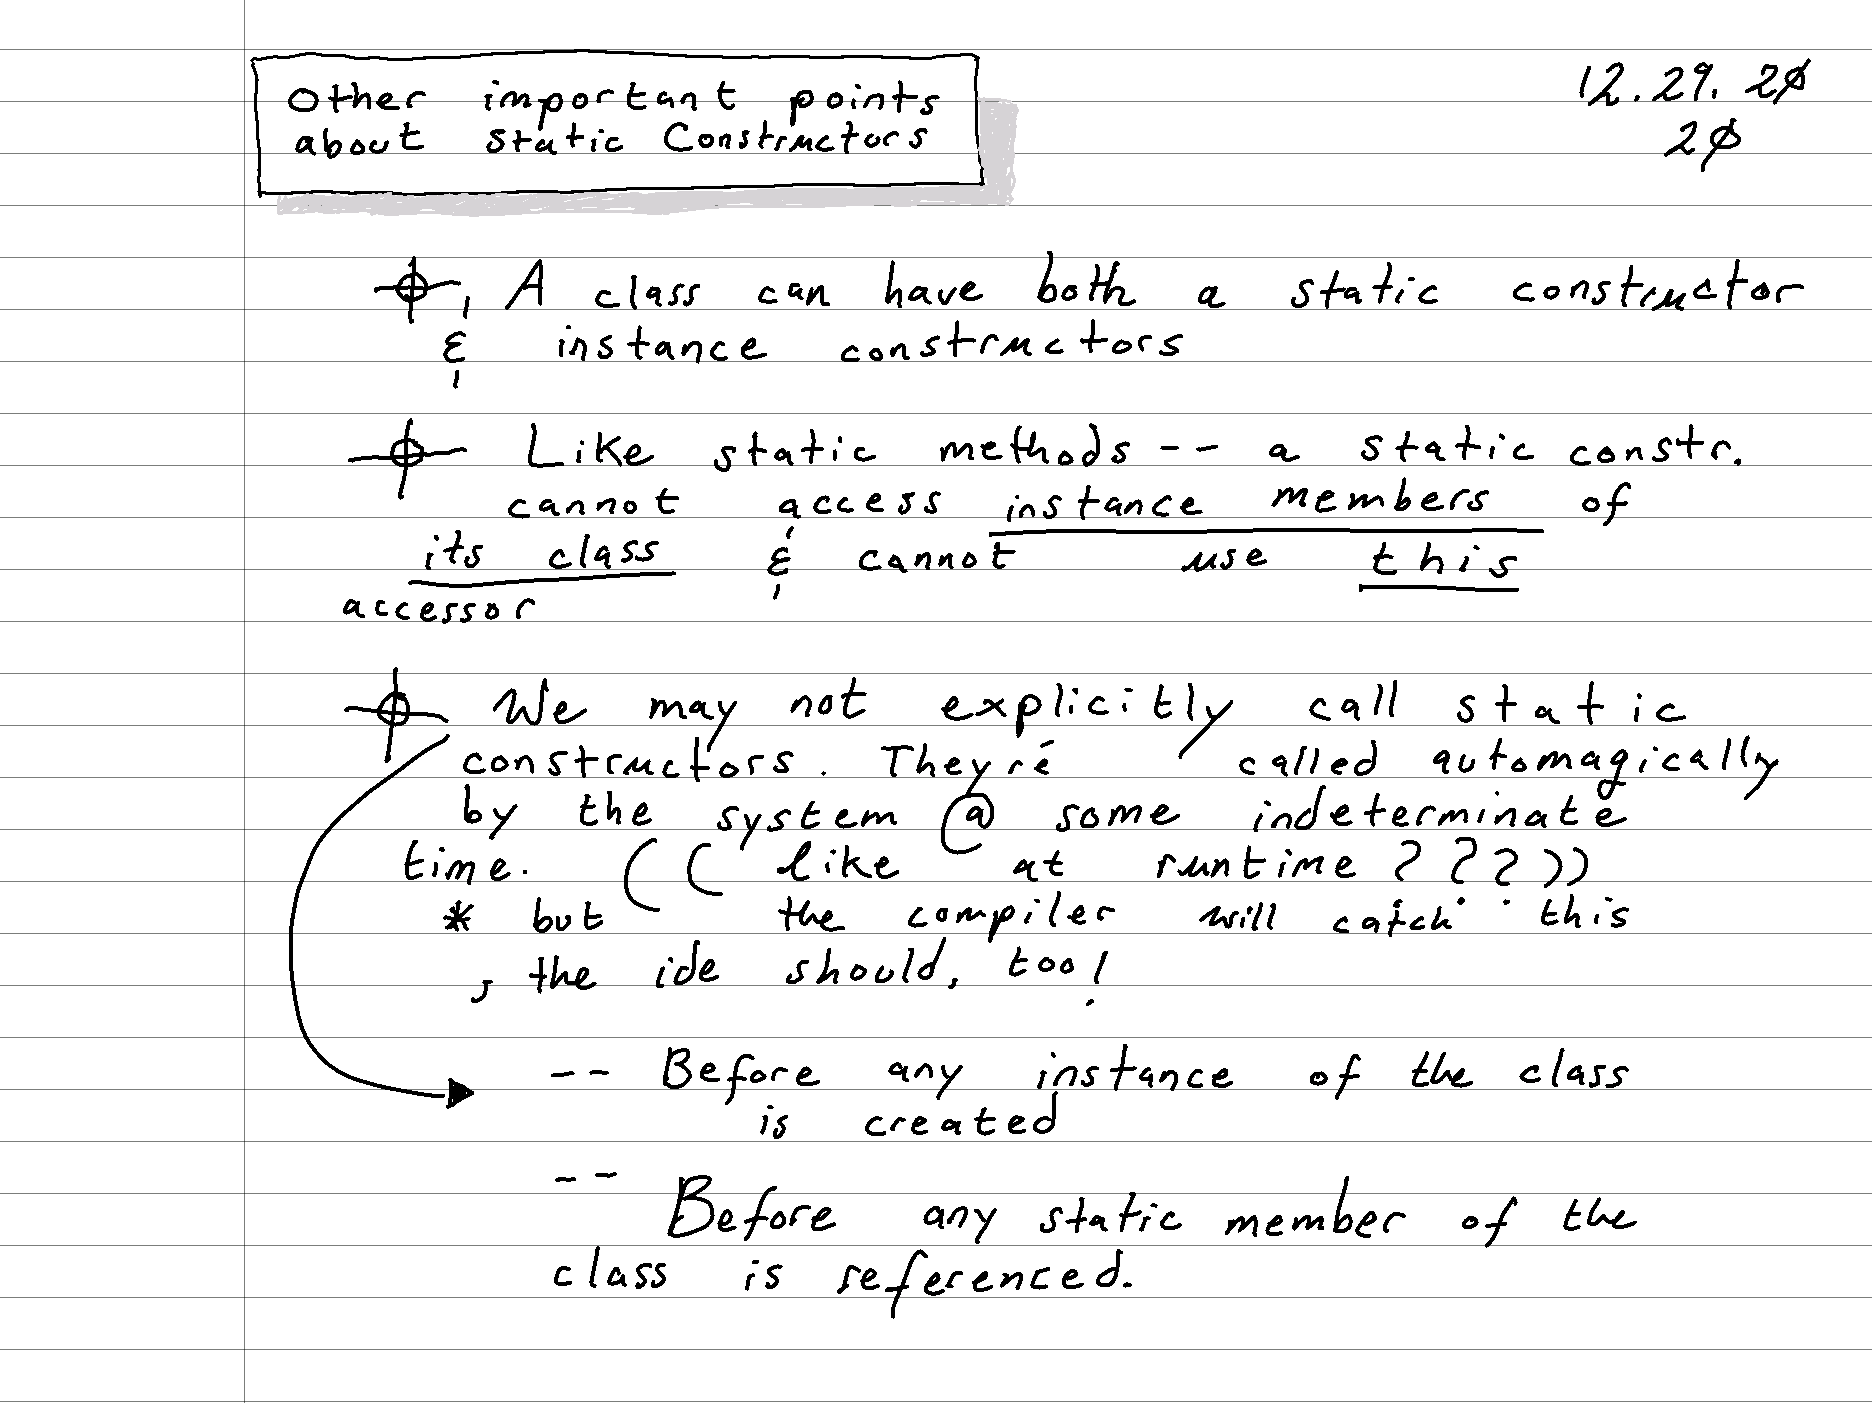 Other important points
about Static Constructors
12.29.20
20
A class can have both a static constructor
& instance constructors
Like static methods -- a static constr.
cannot access instance members of
its class & cannot use this
accessor
We may not explicitly call static
constructors. They're called automagically
by the system @ some indeterminate
time. (( like at runtime ???))
* but the compiler will catch this
, the ide should, too!
-- Before any instance of the class
is created
-- Before any static member of the
class is referenced.